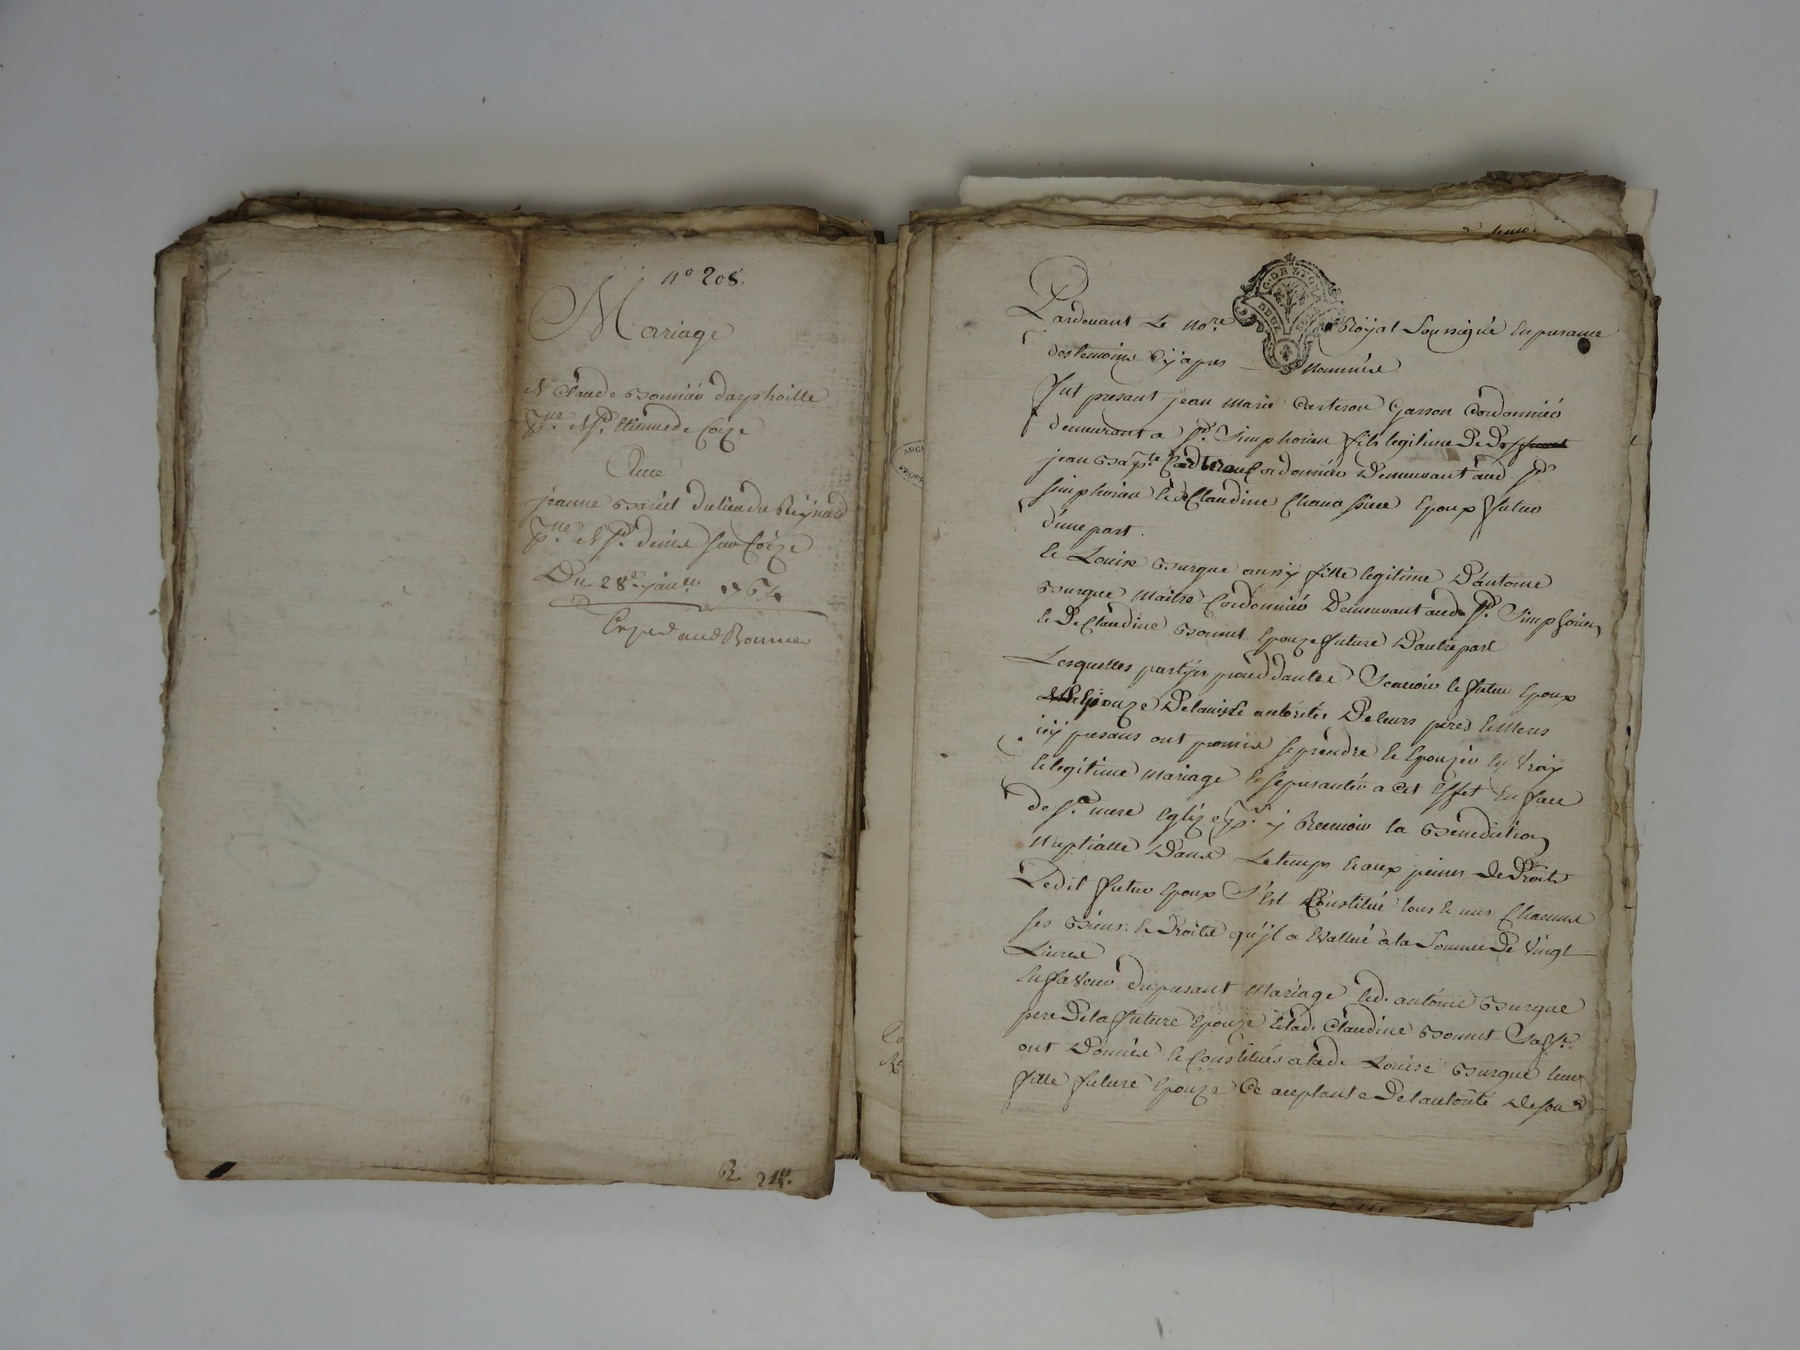 n° 208.
Mariage
Claude Bonnier
St. Etienne de Coize
Avec
jeanne du lieu du Reynard
St. denis sur Coize
Du 28e. janer. 1764
Exped Bonnier
R. 218.
Pardevant Le no.re Royal Soussigné En presance
des temoins Cy apres nommées
fut presant jean marie Carteron Garson Cordonnier
demeurant a St. Simphorien fils legitime De
jean Bap.te Carteron Cordonnier Demeurant aud St.
Simphorien & de Claudine Epoux futur
d'une part.
Et Louise Burque aussy fille legitime D'antoine
Burque Maitre Cordonnier Demeurant aud St. Simphorien
& De Claudine Bonnet Epouze future D'autre part
Lesquelles partyes procedantes Scavoir le futur Epoux
Epouze De l'autorités De leurs peres & Meres
icy presans ont promis se prendre & Epouzer En Vray
& legitime Mariage & se presanter a Cet Effet En face
de Ste mere Eglize pr. y Recevoir la Benediction
Nuptialle Dans Le temps & aux peines De Droits
Ledit futur Epoux S'Est Constitué tous & uns Chacuns
ses Biens & Droits qu'yl a Evallué a la Somme De Vingt
Livres
En faveur du presant Mariage led. antoine Burque
pere De la future Epouze & lad. Claudine Bonnet Sa fe.
ont Donnés & Constitués a lad. Louise Burque leur
fille future Epouze Ce acceptante De l'autorité de son d